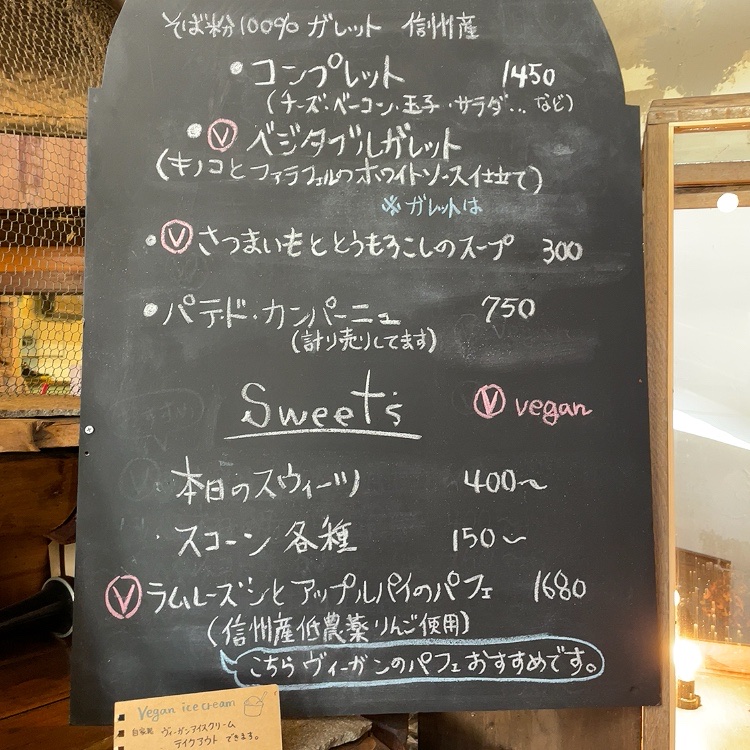 そば粉100% ガレット 信州産
・コンプレット 1450
(チーズ・ベーコン・玉子・サラダ... など)
・Ⓥ ベジタブルガレット
(キノコとファラフェルのホワイトソース仕立て)
※ ガレットは
・Ⓥ さつまいもととうもろこしのスープ 300
・パテド・カンパーニュ 750
(計り売りしてます)
Sweet's
Ⓥ vegan
本日のスウィーツ 400〜
・スコーン 各種 150〜
Ⓥ ラムレーズンとアップルパイのパフェ 1680
(信州産低農薬りんご使用)
こちらヴィーガンのパフェおすすめです。
Vegan ice cream
自家製 ヴィーガンアイスクリーム
テイクアウト できます。